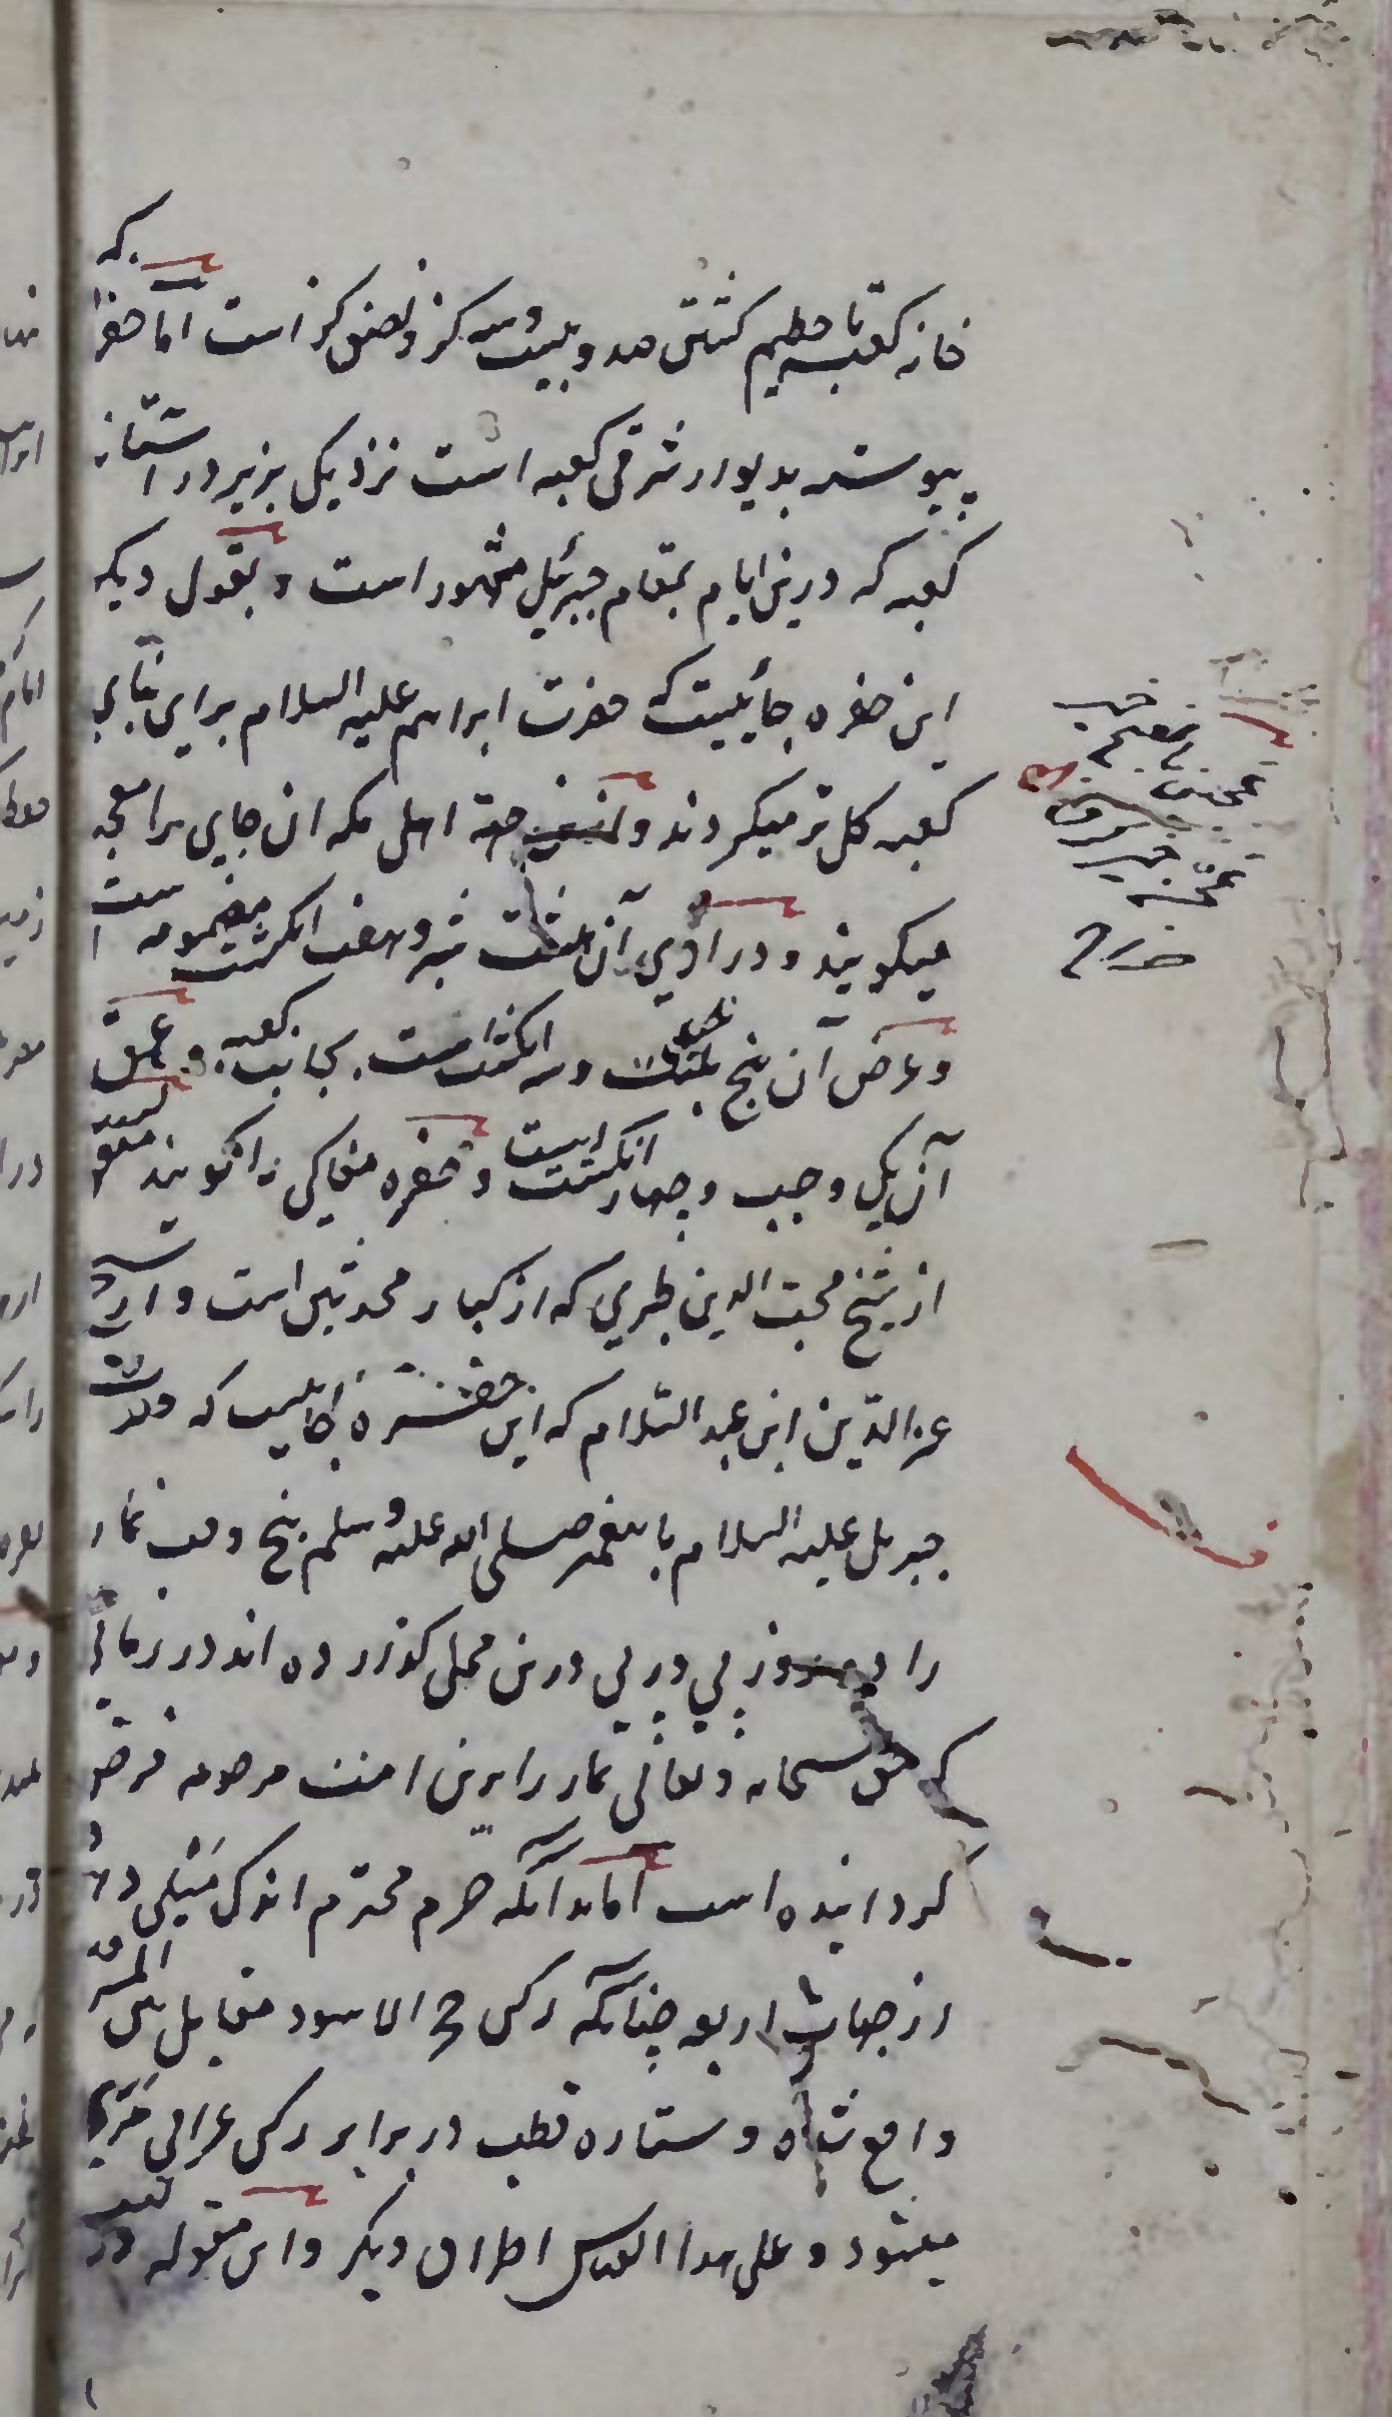 خانه کعبه تا حطیم ششصد و بیست و سه کز و نصف کز است اما حفره که
پیوسته بدیوار شرقی کعبه است نزدیکی بزیر در استانه
کعبه که درین ایام بمقام جبرئیل مشهور است و بقول دیکر
این حفره جائیست که حضرت ابراهیم علیه السلام برای بنای
کعبه کل تر میکردند و جهة اهل مکه ان جای را معجنه
میکویند و درازی آن هشت شبر و هفت انکشت مضمومه است
و عرض آن پنج و سه انکشت است بجانب کعبه و عمق
آن یکی وجب و چهار انکشت است و حفره مغاکی را کویند
از شیخ محب الدین طبری که از کبار محدثین است و از
عز الدین ابن عبد السلام که این حفره جائیست که حضرت
جبریل علیه السلام با پیغمبر صلی الله علیه وسلم پنج وقت نماز
را دو روز پی در پی درین محل کذارده اند در زمانی
که حق سبحانه و تعالی نماز را برین امت مرحومه فرض
کردانیده است اما بدانکه حرم محترم اندک میلی دارد
از جهات اربعه چنانکه رکن حجر الاسود مقابل بین المشرق
واقع شده و ستاره قطب در برابر رکن عراقی
میشود و علی هذا القیاس اطراف دیکر و این مقوله